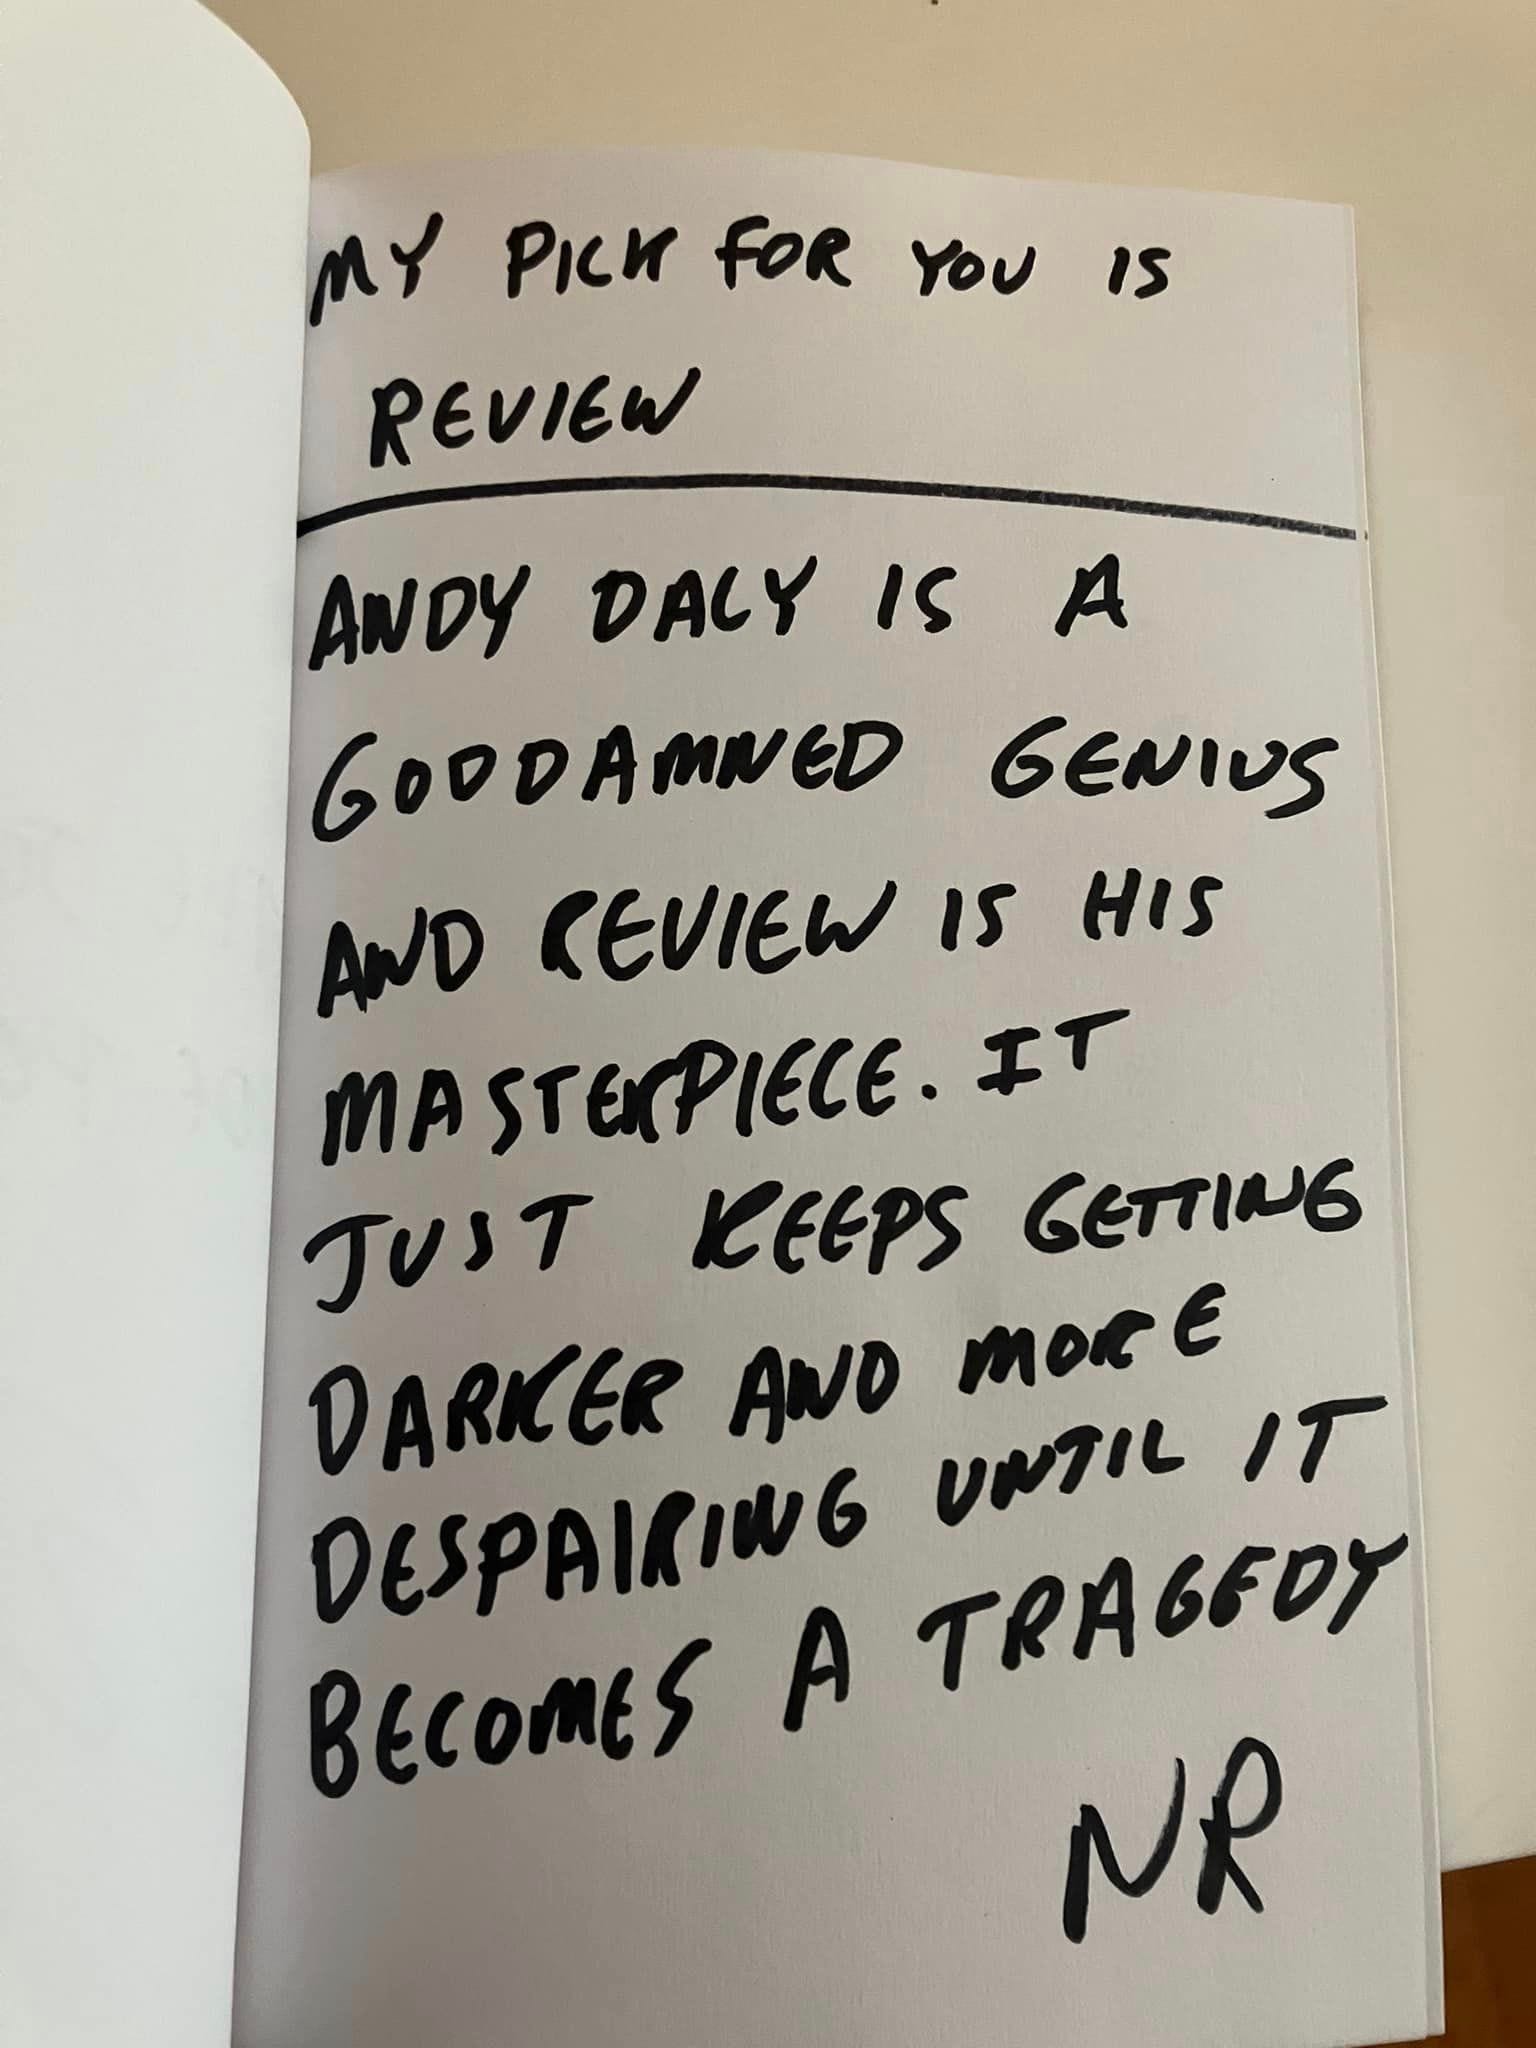 MY PICK FOR YOU IS
REVIEW
ANDY DALY IS A
GODDAMNED GENIUS
AND REVIEW IS HIS
MASTERPIECE. IT
JUST KEEPS GETTING
DARKER AND MORE
DESPAIRING UNTIL IT
BECOMES A TRAGEDY
NR